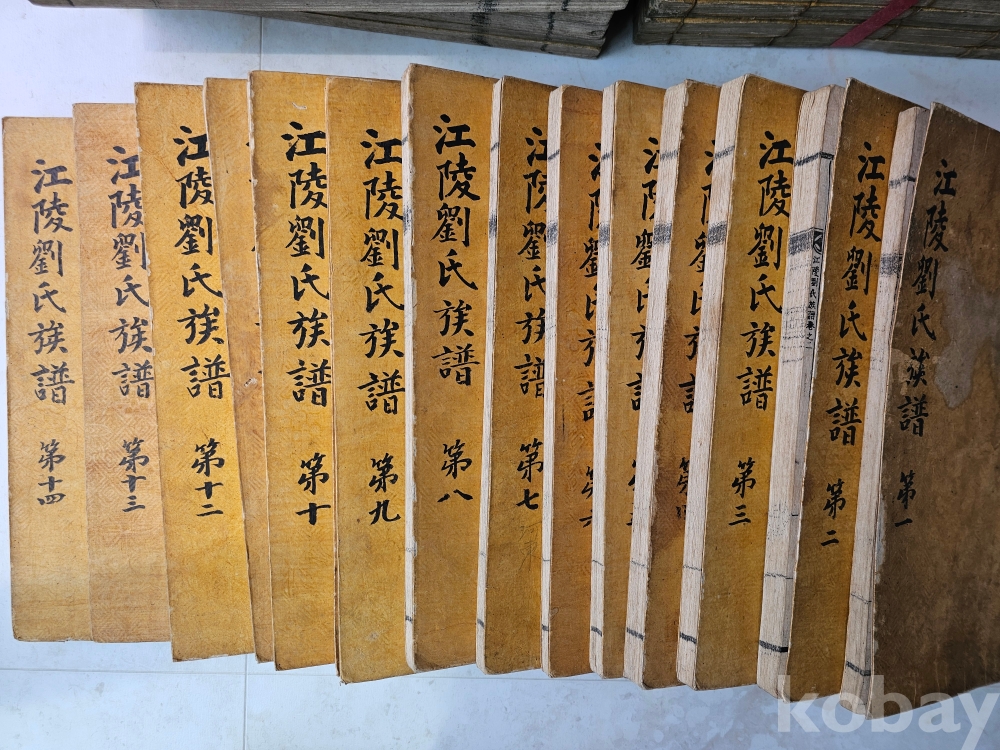 江陵劉氏族譜 第一
江陵劉氏族譜 第二
江陵劉氏族譜卷之一
江陵劉氏族譜 第三
江陵劉氏族譜 第四
江陵劉氏族譜
江陵劉氏族譜 第六
江陵劉氏族譜 第七
江陵劉氏族譜 第八
江陵劉氏族譜 第九
江陵劉氏族譜 第十
江陵劉氏族譜 第十二
江陵劉氏族譜 第十三
江陵劉氏族譜 第十四
kobay